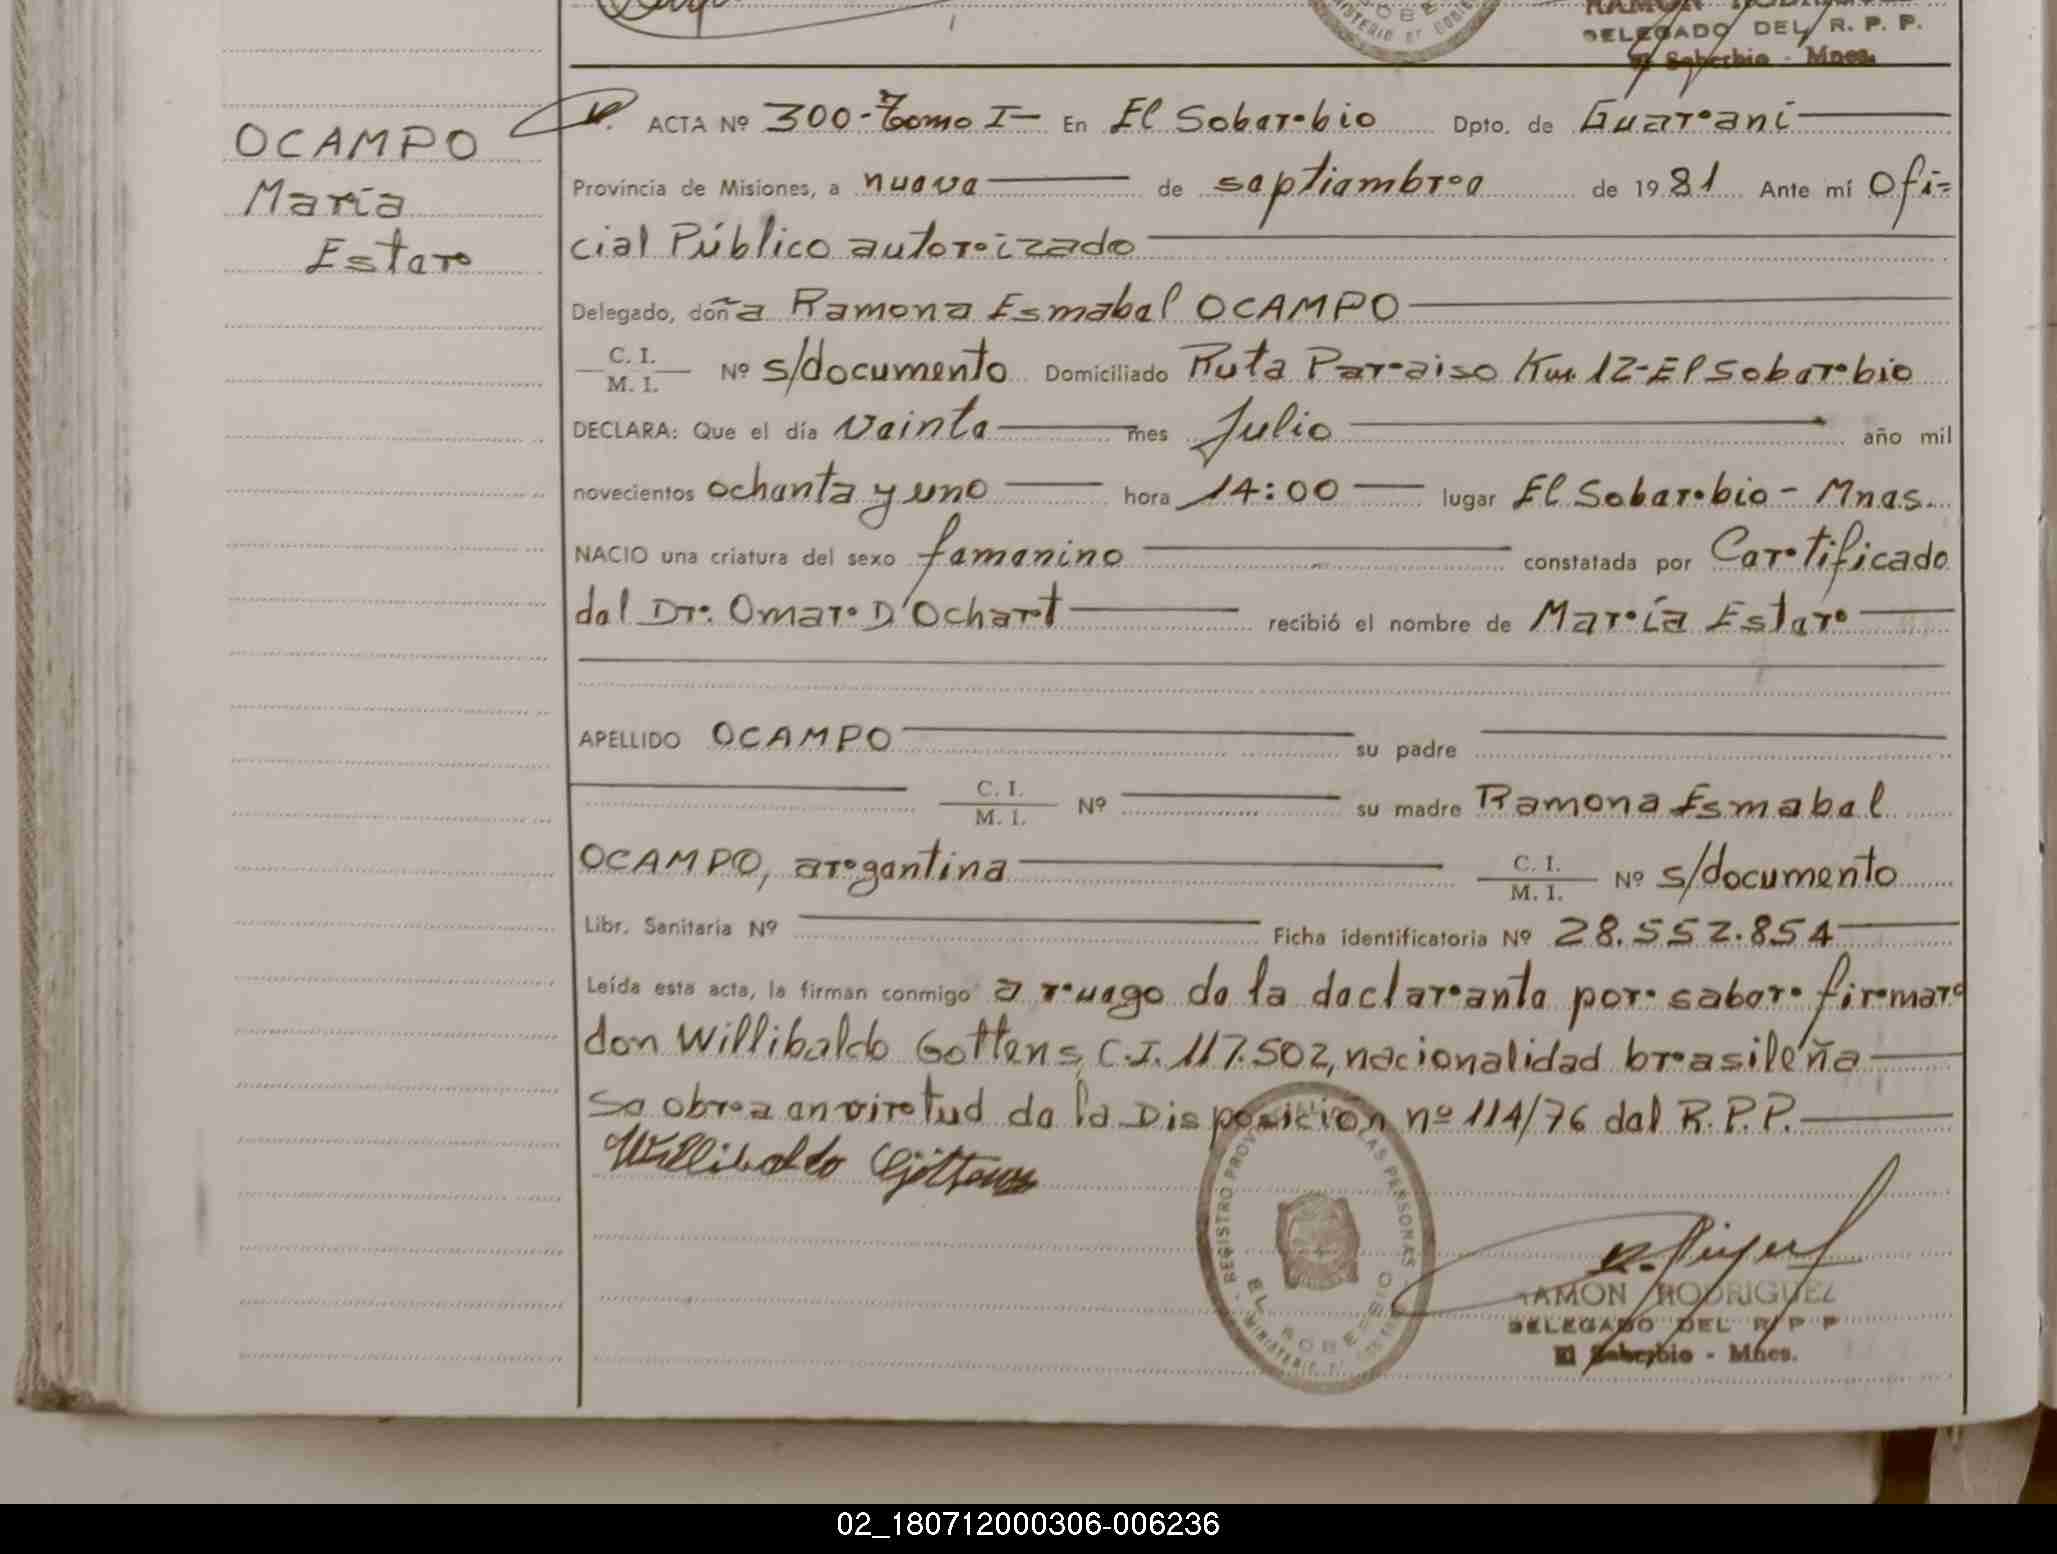 RAMON RODRIGUEZ
DELEGADO DEL R. P. P.
El Soberbio - Mnes.
OCAMPO
María
Ester
ACTA Nº 300-Tomo I- En El Soberbio Dpto. de Guaraní
Provincia de Misiones, a nueve de septiembre de 1981 Ante mí Ofi=
cial Público autorizado
Delegado, doña Ramona Esmabel OCAMPO
C. I.
M. I. Nº s/documento Domiciliado Ruta Paraiso Km 12-El Soberbio
DECLARA: Que el día veinte mes Julio año mil
novecientos ochenta y uno hora 14:00 lugar El Soberbio - Mnes.
NACIO una criatura del sexo femenino constatada por Certificado
del Dr. Omar D'Ochert recibió el nombre de María Ester
APELLIDO OCAMPO su padre
C. I.
M. I. Nº su madre Ramona Esmabel
OCAMPO, argentina C. I.
M. I. Nº s/documento
Libr. Sanitaria Nº Ficha identificatoria Nº 28.552.854
Leída esta acta, la firman conmigo a ruego de la declarante por saber firmar
don Willibaldo Gottens, C.I. 117.502, nacionalidad brasileña
Se obra en virtud de la Disposición nº 114/76 del R.P.P.
Willibaldo Göttems
REGISTRO PROVINCIAL DE LAS PERSONAS
EL SOBERBIO
RAMON RODRIGUEZ
DELEGADO DEL R P P
El Soberbio - Mnes.
02_180712000306-006236